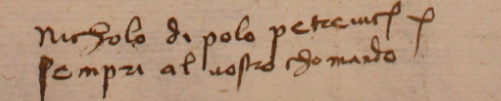 Nicholo di polo petrevicħ
sempri al vostro chomando